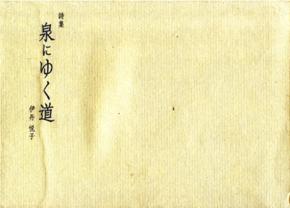 詩集
泉にゆく道
伊丹悦子